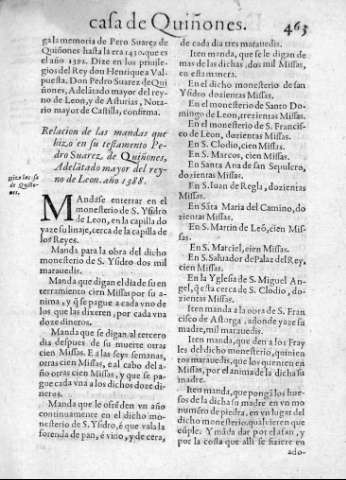 casa de Quiñones. 463
ga la memoria de Pero Suarez de
Quiñones hasta la era 1430. que es
el año 1392. Dize en los priuile-
gios del Rey don Henrique a Val-
puesta. Don Pedro Suarez de Qui
ñones, Adelãtado mayor del rey-
no de Leon, y de Asturias, Nota-
rio mayor de Castilla, confirma.
Relacion de las mandas que
hizo en su testamento Pe-
dro Suarez, de Quiñones,
Adelãtado mayor del rey-
no de Leon. año 1388.
de Quiño-
nes.
MAndase enterrar en el
monesterio de S. Ysidro
de Leon, en la capilla do
yaze su linaje, cerca de la capilla de
los Reyes.
Manda para la obra del dicho
monesterio de S. Ysidro dos mil
marauedis.
Manda que digan el dia de su en
terramiento cien Missas por su a-
nima, y q̃ se pague a cada vno de
los que las dixeren, por cada vna
doze dineros.
Manda que se digan al tercero
dia despues de su muerte otras
cien Missas. E a las seys semanas,
otras cien Missas, e al cabo del a-
ño otras cien Missas, y que se pa-
gue cada vna a los dichos doze di-
neros.
Manda que le ofrẽden vn año
continuamente en el dicho mo-
nesterio de S. Ysidro, é que vala la
forenda de pan, é vino, y de cera,
de cada dia tres marauedis.
Iten manda, que se le digan de
mas de las dichas, dos mil Missas,
en esta manera.
En el dicho monesterio de san
Ysidro dozientas Missas.
En el monesterio de Santo Do-
mingo de Leon, trezientas Missas.
En el monesterio de S. Francis-
co de Leon, dozientas Missas.
En S. Clodio, cien Missas.
En S. Marcos, cien Missas.
En Santa Ana de san Sepulcro,
dozientas Missas.
En S. Iuan de Regla, dozientas
Missas.
En Sãta Maria del Camino, do
zientas Missas.
En S. Martin de Leõ, cien Mis-
sas.
En S. Marciel, cien Missas.
En S. Saluador de Palaz del Rey,
cien Missas.
En la Yglesia de S. Miguel An-
gel, q̃ esta cerca de S. Clodio, do-
zientas Missas.
Iten manda a la obra de S. Fran
cisco de Astorga, adonde yaze su
madre, mil marauedis.
Iten manda, que den a los Fray
les del dicho monesterio, quinien
tos marauedis, que los quenten en
Missas, por el anima de la dicha su
madre.
Iten manda, que pongã los hues-
sos de la dicha su madre en vn mo
numẽto de piedra, en vn lugar del
dicho monesterio, qual vieren que
cuple. Y mãda dar por el asan, y
por la costa que alli se fiziere en
ado-